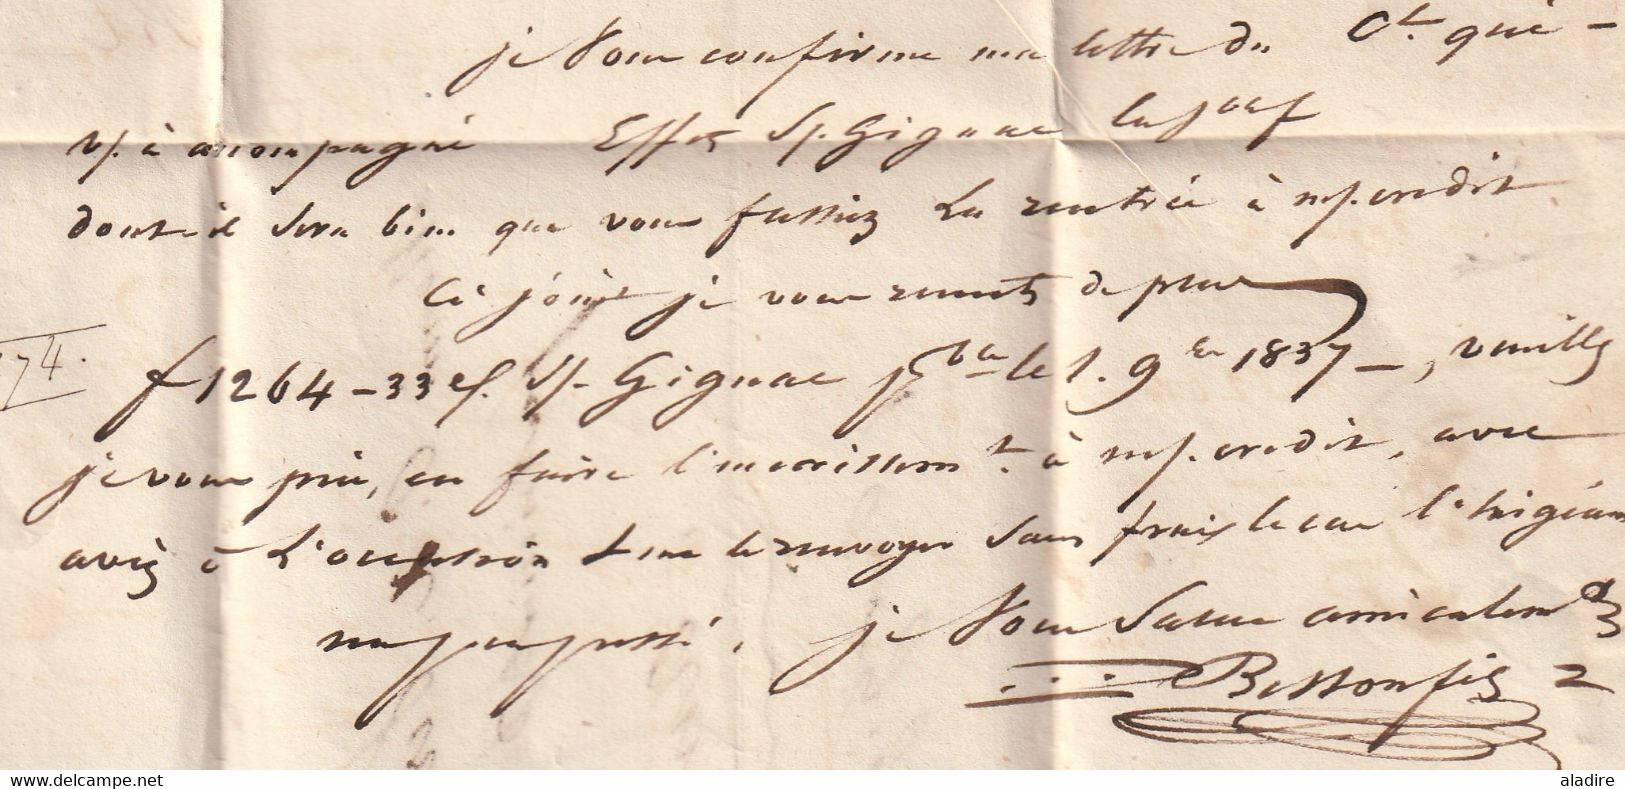 je Vous confirme ma lettre du Ct. qui -
à accompagné Effets Sr. Gignac
dont il sera bien que vous fassiez la rentrée à m/. credit
Ci joint je vous remets de plus
174.
f 1264 - 33 Sr. Gignac le 1. 9bre 1837 -, veuillez
je vous prie, en faire l'encaissemt. à m/. credit, avec
avis à l'occasion & me le renvoyer sans frais le cas l'éxigeant
je Vous salue amicalement
Besson fils
aladire